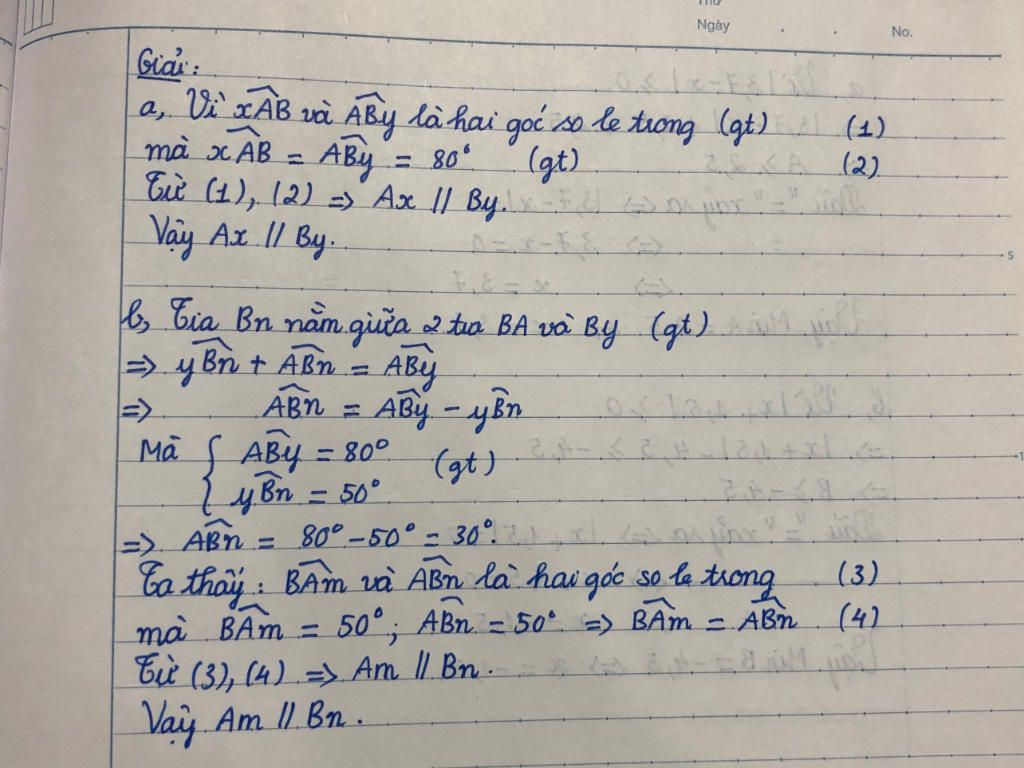 Thứ
Ngày . . No.
Giải:
a, Vì x̂AB và ÂBy là hai góc so le trong (gt) (1)
mà x̂AB = ÂBy = 80° (gt) (2)
Từ (1), (2) => Ax // By.
Vậy Ax // By.
5
b, Tia Bn nằm giữa 2 tia BA và By (gt)
=> ŷBn + ÂBn = ÂBy
=> ÂBn = ÂBy - ŷBn
Mà { ÂBy = 80° (gt)
ŷBn = 50°
=> ÂBn = 80° - 50° = 30°.
Ta thấy: B̂Am và ÂBn là hai góc so le trong (3)
mà B̂Am = 50°; ÂBn = 50° => B̂Am = ÂBn (4)
Từ (3), (4) => Am // Bn.
Vậy Am // Bn.